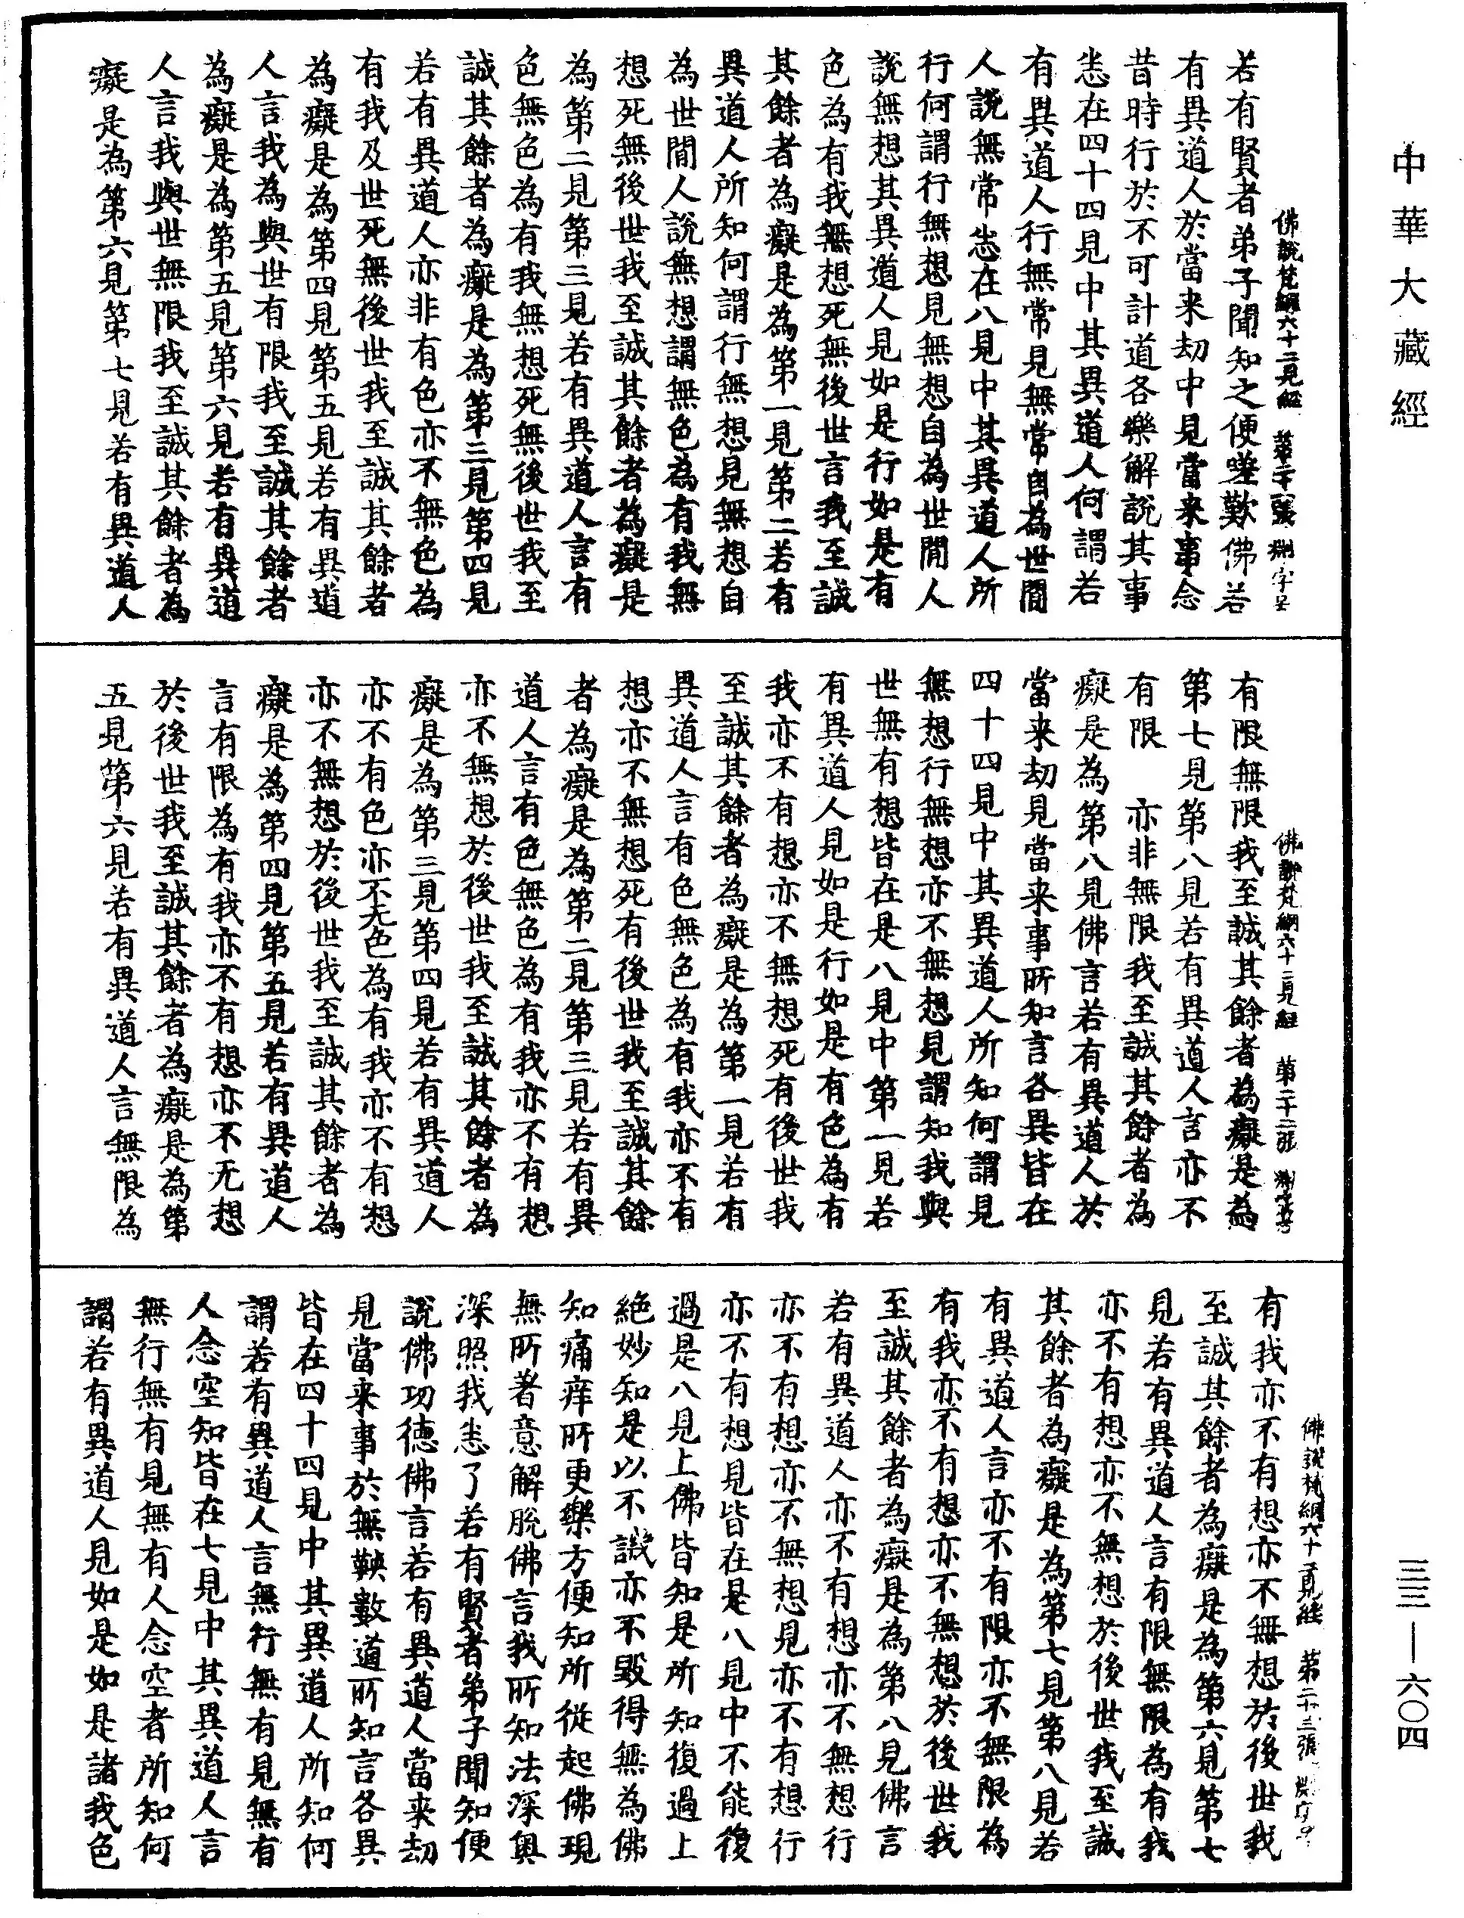 中華大藏經
若有賢者弟子聞知之便嗟歎佛若
有異道人於當来劫中見當来事念
昔時行於不可計道各樂解說其事
悉在四十四見中其異道人何謂若
有異道人行無常見無常自為世間
人說無常悉在八見中其異道人所
行何謂行無想見無想自為世間人
說無想其異道人見如是行如是有
色為有我無想死無後世言我至誠
其餘者為癡是為第一見第二若有
異道人所知何謂行無想見無想自
為世間人說無想謂無色為有我無
想死無後世我至誠其餘者為癡是
為第二見第三見若有異道人言有
色無色為有我無想死無後世我至
誠其餘者為癡是為第三見第四見
若有異道人亦非有色亦不無色為
有我及世死無後世我至誠其餘者
為癡是為第四見第五見若有異道
人言我為與世有限我至誠其餘者
為癡是為第五見第六見若有異道
人言我與世無限我至誠其餘者為
癡是為第六見第七見若有異道人
佛說梵網六十二見經　第二十二張　淵字号
有限無限我至誠其餘者為癡是為
第七見第八見若有異道人言亦不
有限　亦非無限我至誠其餘者為
癡是為第八見佛言若有異道人於
當来劫見當来事所知言各異皆在
四十四見中其異道人所知何謂見
無想行無想亦不無想見謂知我與
世無有想皆在是八見中第一見若
有異道人見如是行如是有色為有
我亦不有想亦不無想死有後世我
至誠其餘者為癡是為第一見若有
異道人言有色無色為有我亦不有
想亦不無想死有後世我至誠其餘
者為癡是為第二見第三見若有異
道人言有色無色為有我亦不有想
亦不無想於後世我至誠其餘者為
癡是為第三見第四見若有異道人
亦不有色亦不无色為有我亦不有想
亦不無想於後世我至誠其餘者為
癡是為第四見第五見若有異道人
言有限為有我亦不有想亦不无想
於後世我至誠其餘者為癡是為第
五見第六見若有異道人言無限為
佛說梵網六十二見經　第二十三張　淵字号
有我亦不有想亦不無想於後世我
至誠其餘者為癡是為第六見第七
見若有異道人言有限無限為有我
亦不有想亦不無想於後世我至誠
其餘者為癡是為第七見第八見若
有異道人言亦不有限亦不無限為
有我亦不有想亦不無想於後世我
至誠其餘者為癡是為第八見佛言
若有異道人亦不有想亦不無想行
亦不有想亦不無想見亦不有想行
亦不有想見皆在是八見中不能復
過是八見上佛皆知是所知復過上
絕妙知是以不譏亦不毀得無為佛
知痛痒所更樂方便知所從起佛現
無所著意解脫佛言我所知法深奥
深照我悉了若有賢者弟子聞知便
說佛功徳佛言若有異道人當来劫
見當来事於無鞅數道所知言各異
皆在四十四見中其異道人所知何
謂若有異道人言無行無有見無有
人念空知皆在七見中其異道人言
無行無有見無有人念空者所知何
謂若有異道人見如是如是諸我色
三三—六〇四